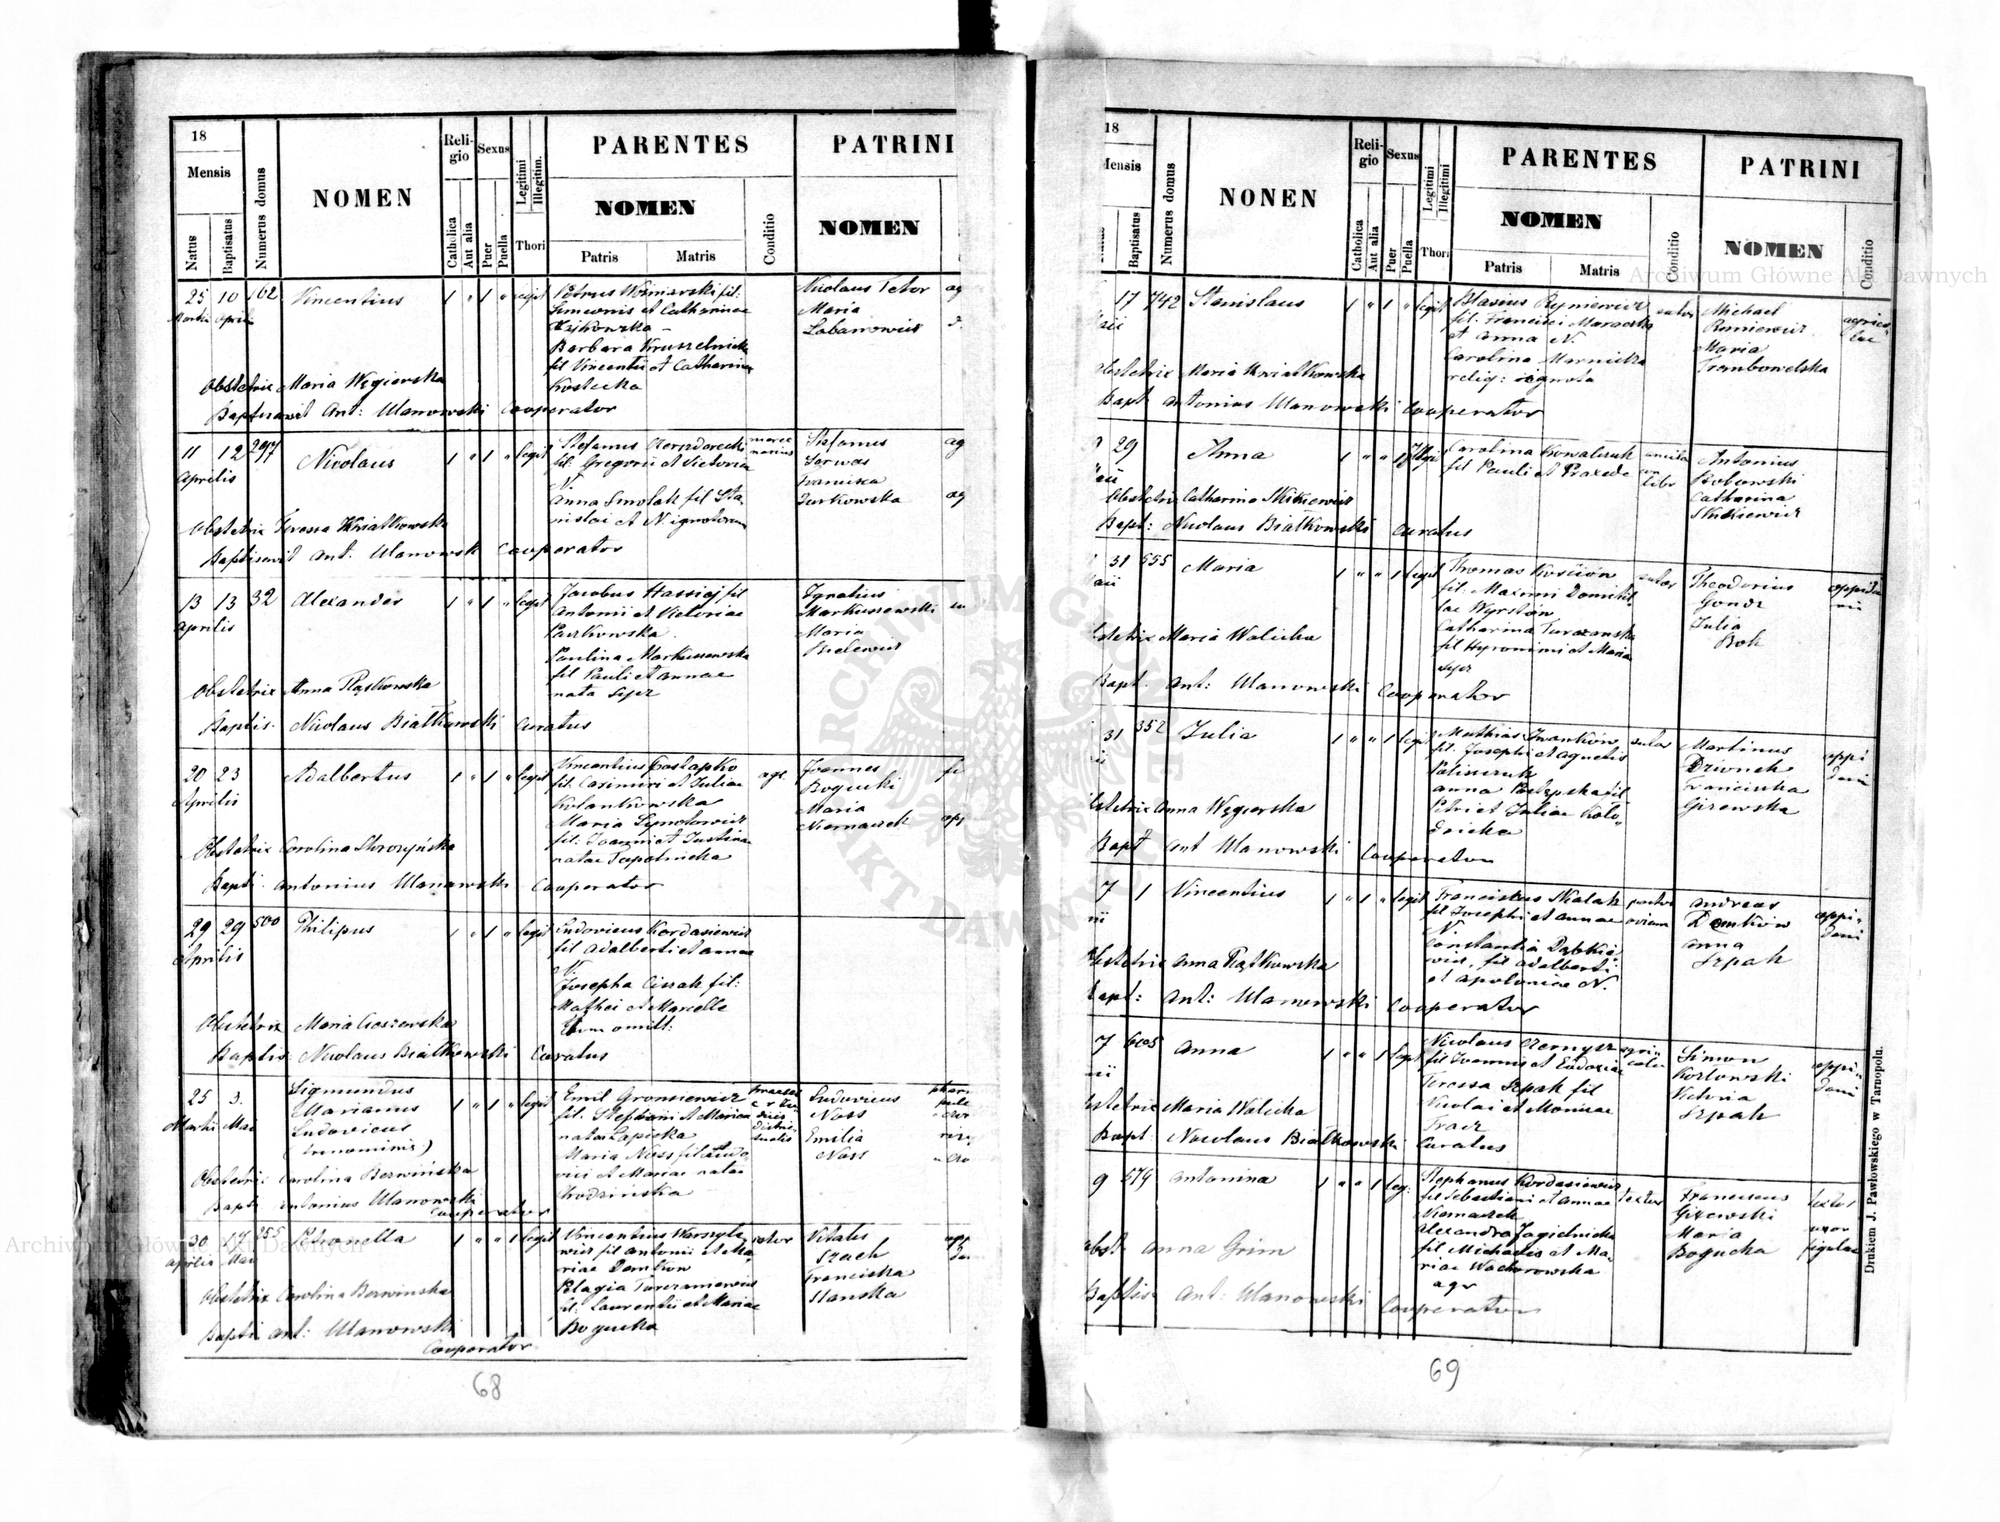 18
Mensis
Natus
Baptisatus
Numerus domus
NOMEN
Religio
Catholica
Aut alia
Sexus
Puer
Puella
Legitimi
Illegitim.
Thori
PARENTES
NOMEN
Patris
Matris
Conditio
PATRINI
NOMEN
25 10 162 Vincentius 1 " 1 " legit
Martii Aprilis
Simeonis et Catharinae
Barbara Kruszelnicka
fil Vincentii et Catharina
Kostecka
Nicolaus Tetor
Maria
Labanowicz
Obstetrix Maria Węgierska
Baptisavit Ant: Ulanowski Cooperator
11 12 297 Nicolaus 1 " 1 " legit
Aprilis
fil: Gregorii et Victoria
N.
Anna Smolak fil Sta
nislai et N. ignotorum
Stefanus
Franciska
Jurkowska
Obstetrix Teressa Kwiatkowska
Baptisavit Ant. Ulanowski Cooperator
13 13 32 Alexander 1 " 1 " legit
Aprilis
Jacobus Hassiaj fil
Antonii et Victoriae
Paszkowska
Paulina Markuszewska
fil Pauli et Annae
nata Szpr
Ignatius
Markuszewski
Maria
Bielewicz
Obstetrix Anna Piątkowska
Baptis. Nicolaus Białkowski Curatus
20 23 Adalbertus 1 " 1 " legit
Aprilis
Vincentius Costapko
fil. Casimiri et Juliae
Kolankowska
Maria Symotowicz
fil: Joannis et Justina
natae Topolnicka
agr.
Joannes
Bogucki
Maria
Niemaszek
Obstetrix Carolina Skrozyńska
Bapti. Antonius Ulanowski Cooperator
29 29 500 Philipus 1 " 1 " legit
Aprilis
Ludovicus Kordasiewicz
fil Adalberti et Annae
N.
Josepha Cissak fil:
Mathei et Marcelle
Obstetrix Maria Croszewska
Baptis. Nicolaus Białkowski Curatus
25 3. Sigmundus
Martii Mai Marianus 1 " 1 " legit
Ludovicus
(trenominis)
Emil Gronsiewicz
fil. Stephani et Mariae
natae Lapicka
Maria Noss fil Ludo
vici et Mariae natae
Chodzińska
Ludovicus
Noss
Emilia
Noss
Obstetri: Carolina Berwińska
Bapti Antonius Ulanowski
Cooperator
30 17 255 Petronella 1 " " 1 legit
Aprilis Mai
Vincentius Warszyla
wicz fil Antonii et Ma
riae Domkon
Pelagia Turczmanewicz
fil: Laurentii et Mariae
Bogucka
sutor
Vitalis
Szach
Franciska
Slanska
Obstetrix Carolina Berwinska
Bapti Ant: Ulanowski
Cooperator
68
18
Mensis
Natus
Baptisatus
Numerus domus
NONEN
Religio
Catholica
Aut alia
Sexus
Puer
Puella
Legitimi
Illegitimi
Thori
PARENTES
NOMEN
Patris
Matris
Conditio
PATRINI
NOMEN
Conditio
17 742 Stanislaus 1 " 1 " legit
Blasius Ryniewicz
fil. Francisci Maraeska
et Anna N.
Carolina Marnicka
relig: ignota
sutor
Michael
Romiewicz
Maria
Trembowelska
agrico-
lae
Obstetrix Maria Kwiatkowska
Bapt Antonius Ulanowski Cooperator
29 Anna 1 " " 1 Illegit
Carolina Kowalczuk
fil Pauli et Praxede
Antonius
Bobowski
Catharina
Skikiewicz
Obstetrix Catharina Skikiewicz
Bapt: Nicolaus Białkowski Curatus
31 555 Maria 1 " " 1 legit
Thomas Kosiion
fil. Maximi Domicil
lae Wyrston
Catharina Turczanska
fil Hyronimi et Maria
Szpr
sutor
Theodorius
Gondz
Julia
Bok
oppida
nii
Obstetrix Maria Walicka
Bapt. Ant: Ulanowski Cooperator
31 352 Julia 1 " " 1 legit
Mathias Iwanków
fil. Josephi et Agnetis
Paliszczuk
Anna Postępska fil
Petri et Juliae Koło
dzicka
sutor
Martinus
Dzionek
Franciska
Gizewska
oppi
dani
Obstetrix Anna Węgierska
Bapt Ant Ulanowski Cooperator
7 1 Vincentius 1 " 1 " legit
Franciskus Skalak
fil Josephi et Annae
N.
Constantia Dąbkie
wicz, fil Adalberti
et Apoloniae N.
pastor
ovium
Andreas
Domków
Anna
Szpak
oppi-
dani
Obstetrix Anna Piątkowska
Bapt: Ant: Ulanowski Cooperator
7 605 Anna 1 " " 1 legit
Nicolaus Czornysz
fil Joannis et Eudoxiae
Teressa Szpak fil
Nicolai et Monicae
Tracz
agri-
cola
Simon
Kozlowski
Victoria
Szpak
oppi-
dani
Obstetrix Maria Walicka
Bapt. Nicolaus Białkowski Curatus
9 579 Antonina 1 " " 1 leg:
Stephanus Kordasiewicz
fil Sebastiani et Annae
Niemaszek
Alexandra Jagielnicka
fil Michaelis et Ma-
riae Wachorowska
agr
textor
Franciscus
Gizewski
Maria
Bogucka
textor
uxor
figulae
Obst. Anna Grim
Baptis. Ant: Ulanowski Cooperator
69
Drukiem J. Pawłowskiego w Tarnopolu.
Archiwum Główne Akt Dawnych
Archiwum Główne Akt Dawnych
ARCHIWUM GŁÓWNE AKT DAWNYCH